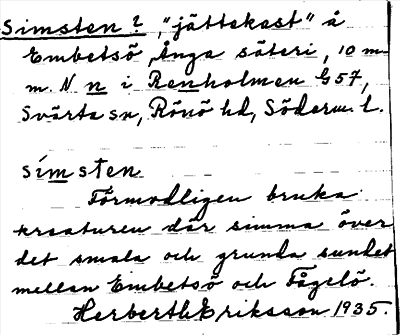 Simsten?, "jättekast" å
Embetsö, Ånga säteri, 10 mm
m. N n i Renholmen G57,
Svärta sn, Rönö hd, Söderm. l.
simsten
Förmodligen bruka
kreaturen där simma över
det smala och grunda sundet
mellan Embetsö och Fågelö.
Herbert Eriksson 1935.